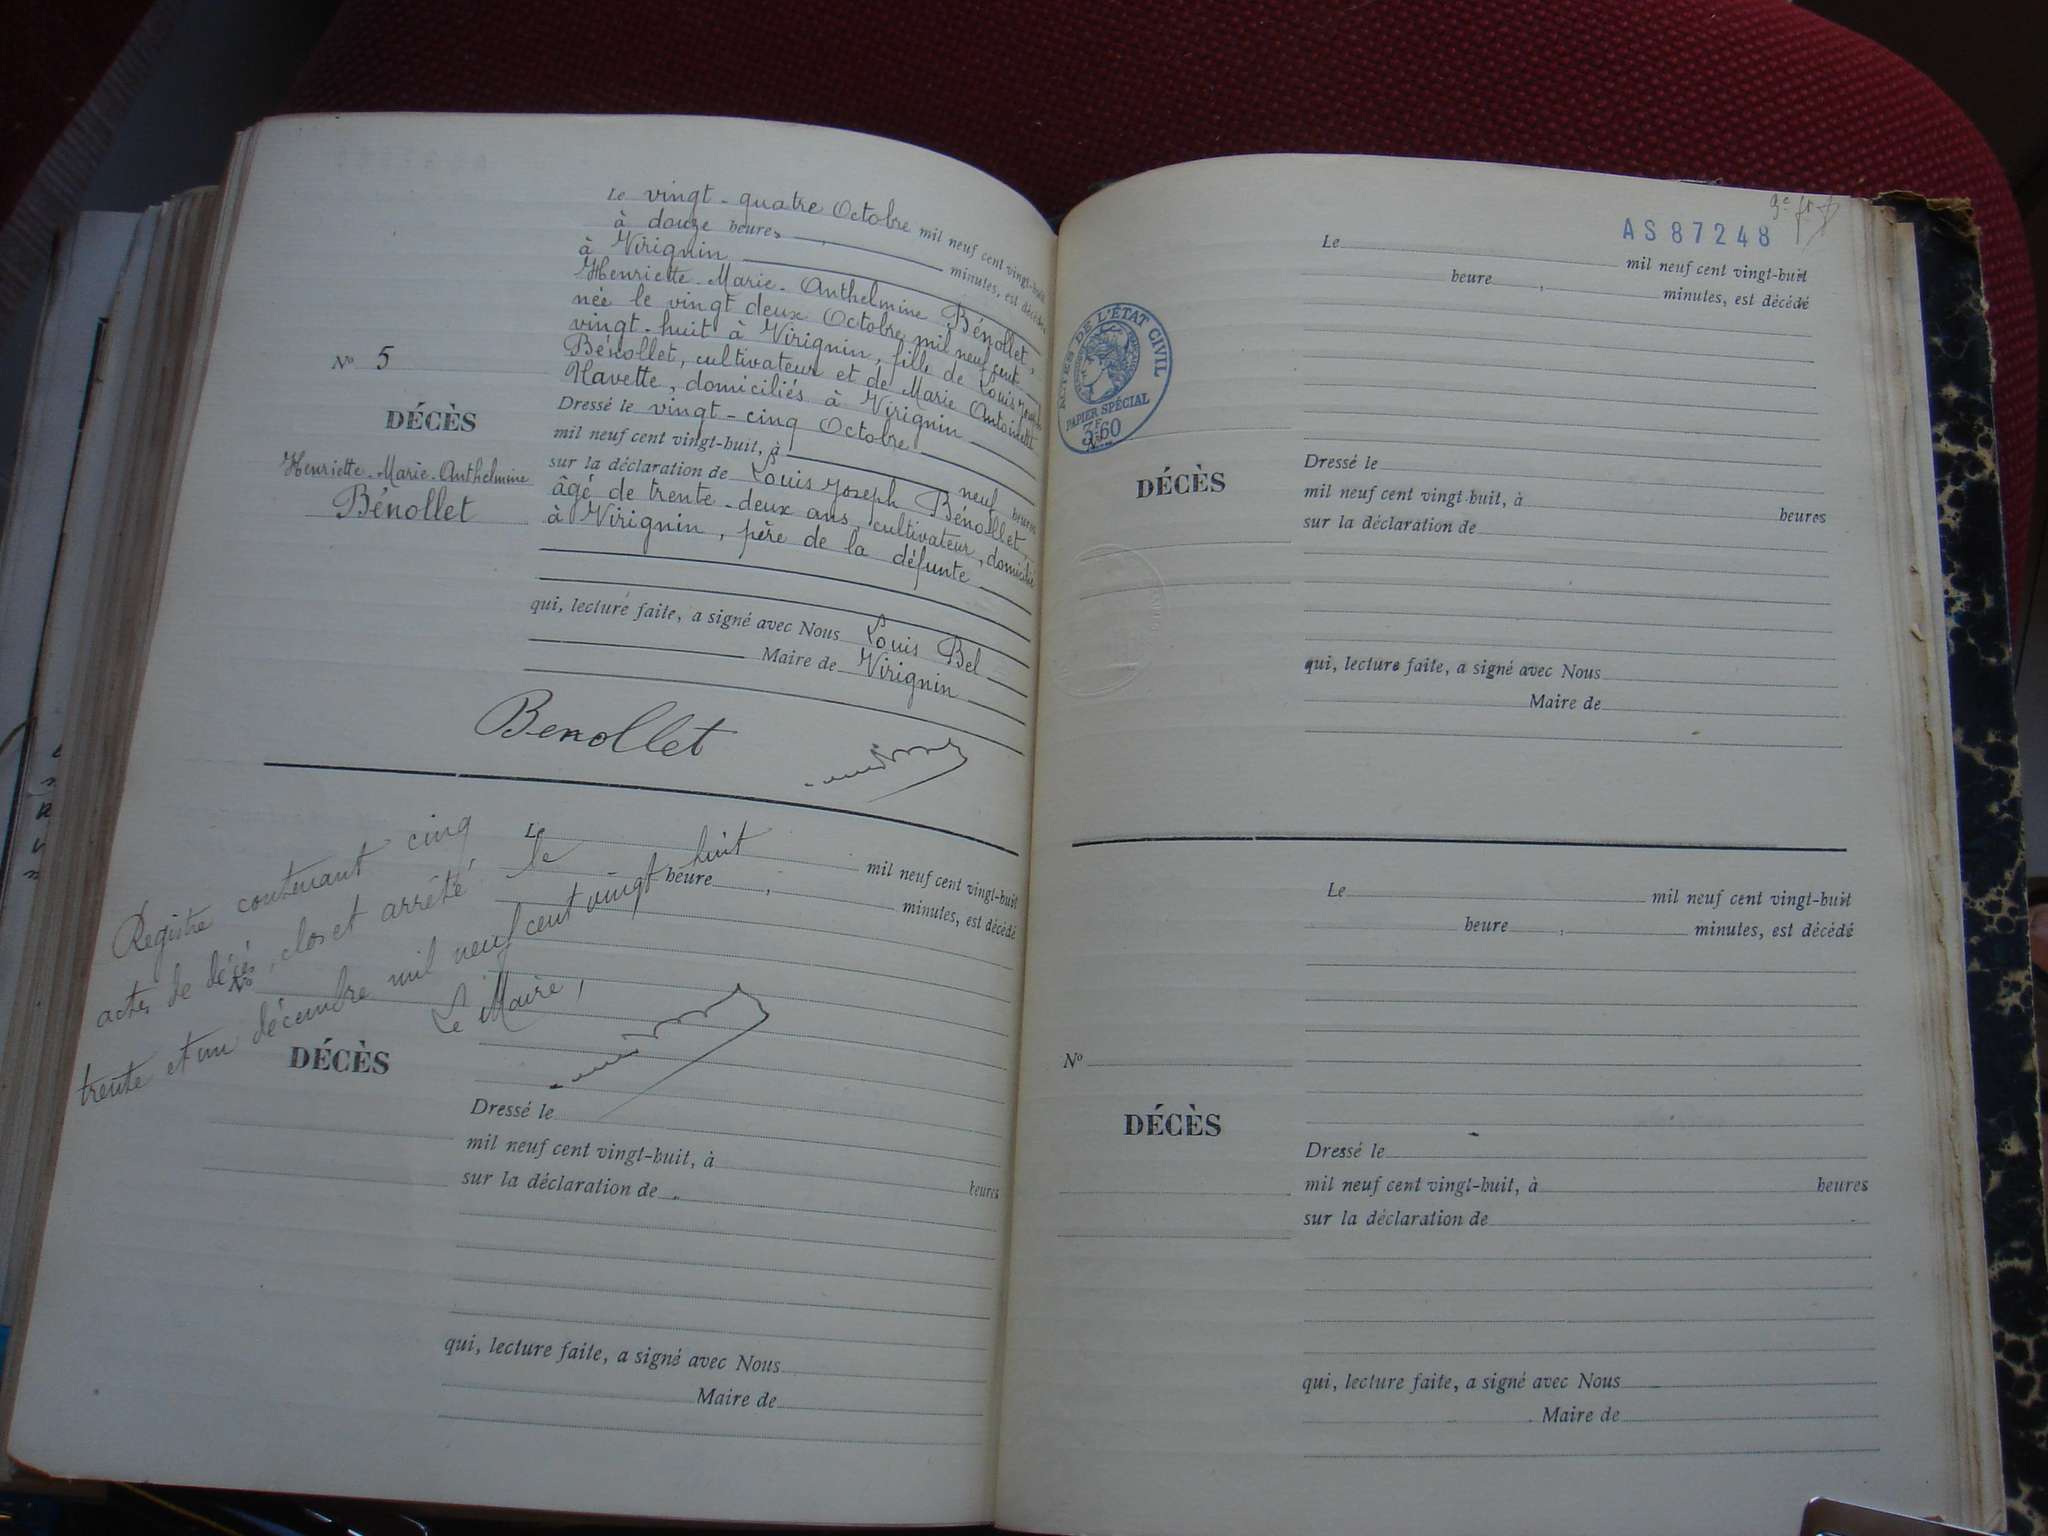 Le vingt-quatre Octobre mil neuf cent vingt-huit
à douze heures , minutes, est décédée
à Virignin
Henriette-Marie-Anthelmine Bénollet,
née le vingt deux Octobre mil neuf cent
vingt-huit à Virignin, fille de Louis Joseph
Bénollet, cultivateur et de Marie Antoinette
Navette, domiciliés à Virignin
Dressé le vingt-cinq Octobre
mil neuf cent vingt-huit, à neuf heures
sur la déclaration de Louis Joseph Bénollet,
âgé de trente-deux ans, cultivateur, domicilié
à Virignin, père de la défunte
qui, lecture faite, a signé avec Nous Louis Bel
Maire de Virignin
Nº 5
DÉCÈS
Henriette-Marie-Anthelmine
Bénollet
Benollet
Registre contenant cinq
actes de décès, clos et arrêté le
trente et un décembre mil neuf cent vingt huit
Le Maire,
Le mil neuf cent vingt-huit
heure , minutes, est décédé
Nº
DÉCÈS
Dressé le
mil neuf cent vingt-huit, à heures
sur la déclaration de
qui, lecture faite, a signé avec Nous
Maire de
AS87248
Le mil neuf cent vingt-huit
heure , minutes, est décédé
ACTES DE L'ÉTAT CIVIL
PAPIER SPÉCIAL
3F60
DÉCÈS
Dressé le
mil neuf cent vingt-huit, à heures
sur la déclaration de
qui, lecture faite, a signé avec Nous
Maire de
Le mil neuf cent vingt-huit
heure , minutes, est décédé
Nº
DÉCÈS
Dressé le
mil neuf cent vingt-huit, à heures
sur la déclaration de
qui, lecture faite, a signé avec Nous
Maire de